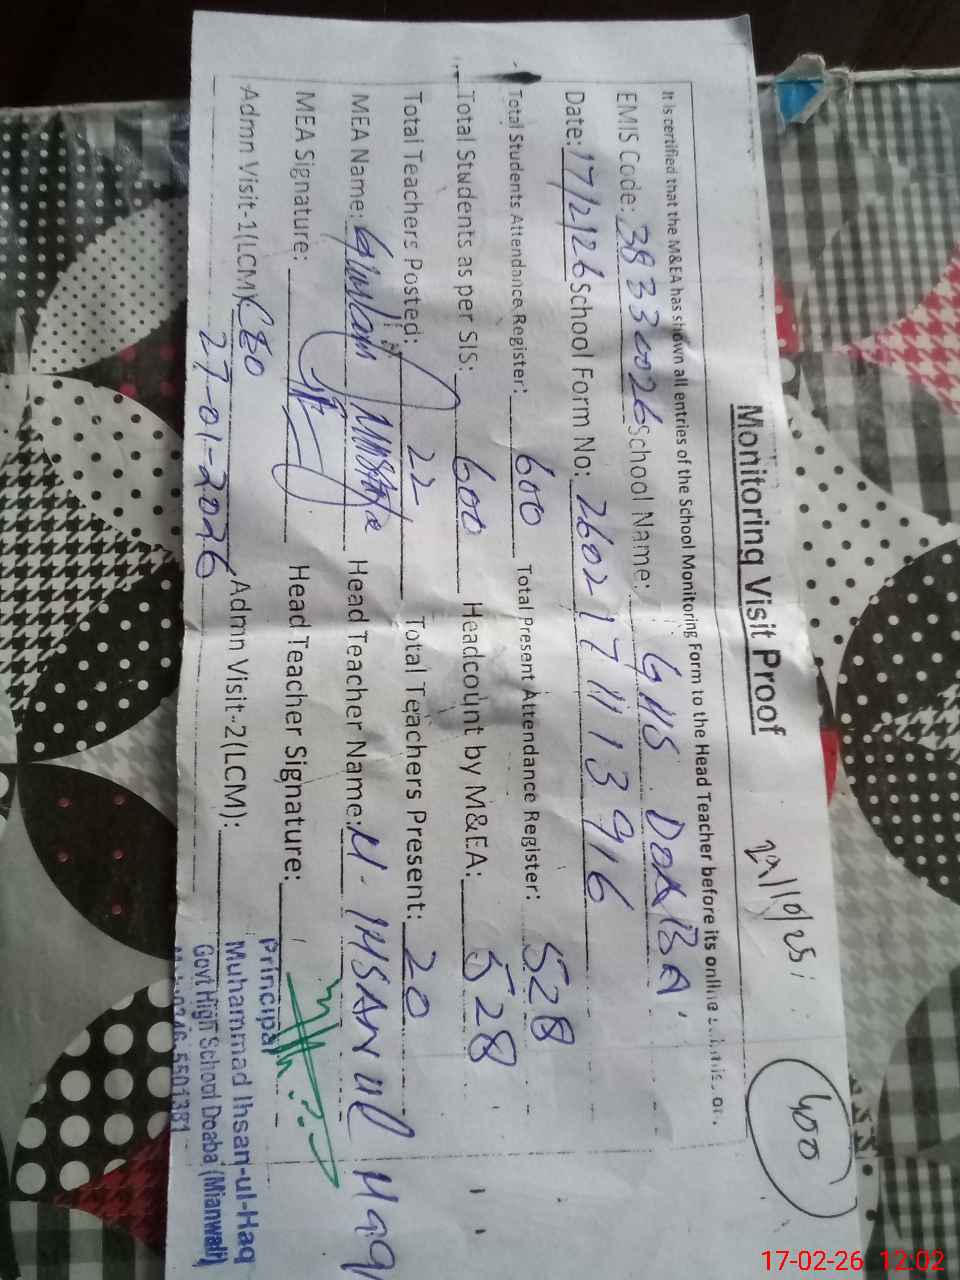 Monitoring Visit Proof
400
It is certified that the M&EA has shown all entries of the School Monitoring Form to the Head Teacher before its online
EMIS Code: 38330026 School Name: GHS DOABA
Date: 17/2/26 School Form No: 2602171113916
Total Students Attendance Register: 600 Total Present Attendance Register: 528
Total Students as per SIS: 600 Headcount by M&EA: 528
Total Teachers Posted: 22 Total Teachers Present: 20
MEA Name: Ghulam Mustafa Head Teacher Name: M. IHSAN ul Haq
MEA Signature: Head Teacher Signature:
Admn Visit-1(LCM) CEO 27-01-2026 Admn Visit-2(LCM):
Principal
Muhammad Ihsan-ul-Haq
Govt High School Doaba (Mianwali)
0346-5501381
17-02-26 12:02